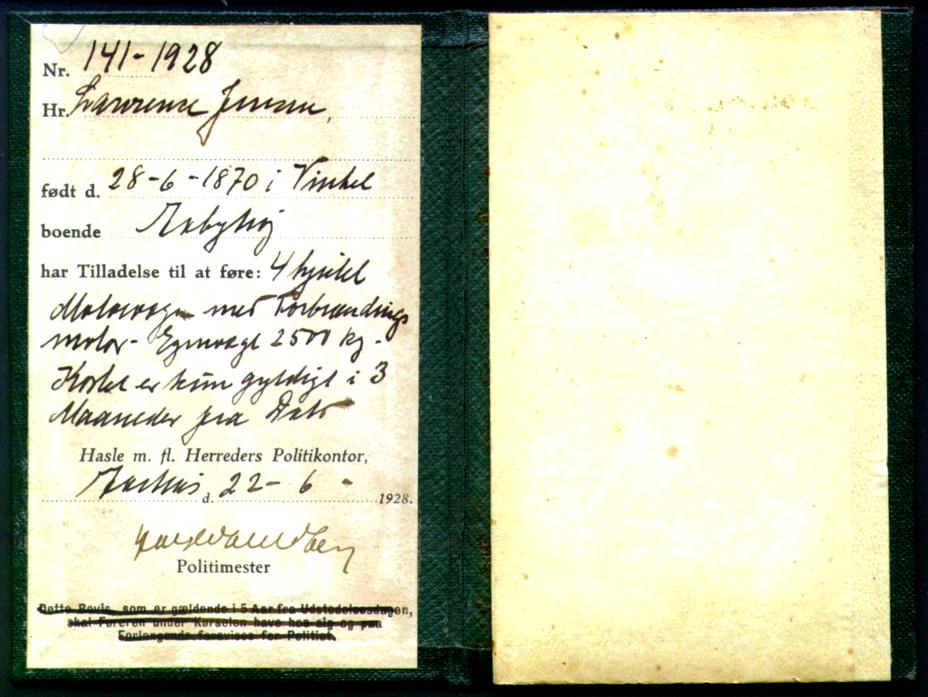 Nr. 141-1928
Hr. Lawrense Jensen,
født d. 28-6-1870 i Vinkel
boende Aabyhøj
har Tilladelse til at føre: 4 hjulet
Motorvogn med Forbrændings
motor - Egenvægt 2500 kg -
Kortet er kun gyldigt i 3
Maaneder fra Dato
Hasle m. fl. Herreders Politikontor,
Aarhus d. 22-6- 1928.
Politimester
Dette Bevis, som er gældende i 5 Aar fra Udstedelsesdagen,
skal Føreren under Kørselen have hos sig og paa
Forlangende forevises for Politiet.